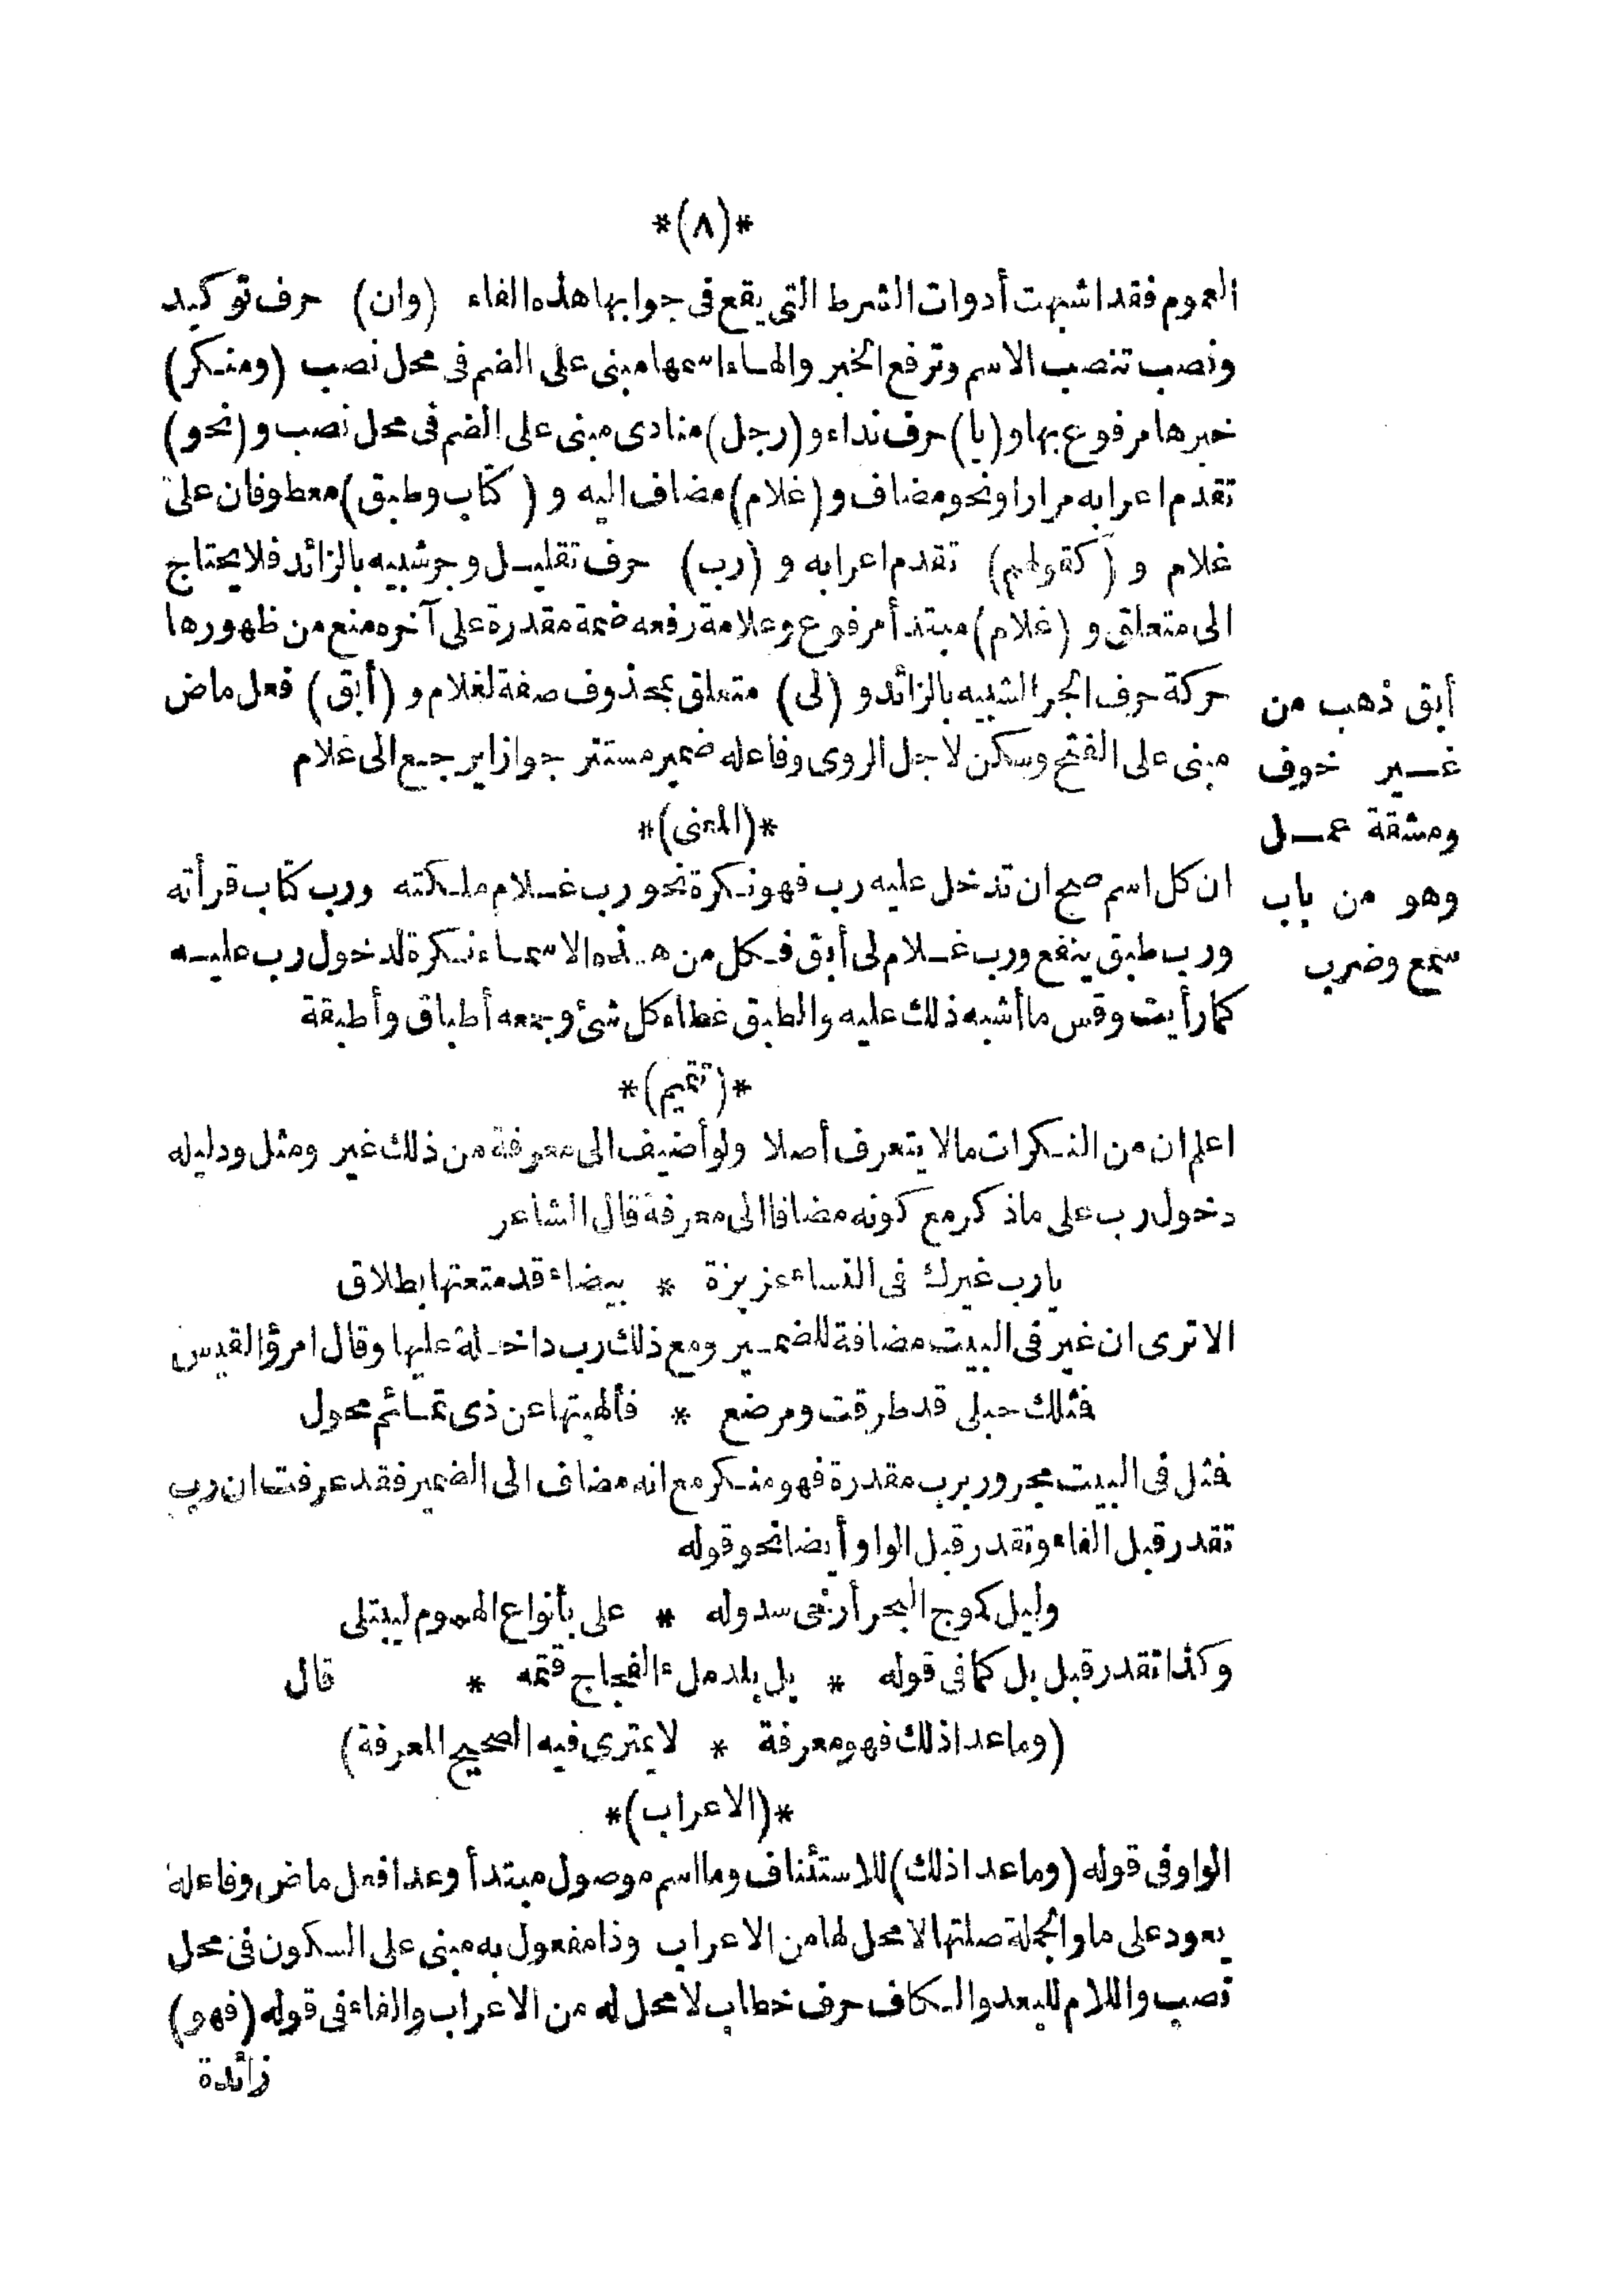 *(٨)*
العموم فقد اشبهت أدوات الشرط التى يقع فى جوابها هذه الفاء (وان) حرف توكيد
ونصب تنصب الاسم وترفع الخبر والهاء اسمها مبنى على الضم فى محل نصب (ومنكر)
خبرها مرفوع بها و(يا) حرف نداء و(رجل) منادى مبنى على الضم فى محل نصب و(نحو)
تقدم اعرابه مرارا ونحو مضاف و(غلام) مضاف اليه و (كتاب وطبق) معطوفان على
غلام و (كقولهم) تقدم اعرابه و (رب) حرف تقليل وجر شبيه بالزائد فلا يحتاج
الى متعلق و (غلام) مبتدأ مرفوع وعلامة رفعه ضمة مقدرة على آخره منع من ظهورها
حركة حرف الجر الشبيه بالزائد و (لى) متعلق بمحذوف صفة لغلام و (أبق) فعل ماض
مبنى على الفتح وسكن لاجل الروى وفاعله ضمير مستتر جوازا يرجع الى غلام
أبق ذهب من
غير خوف
ومشقة عمل
وهو من باب
سمع وضرب
*(المعنى)*
ان كل اسم صح ان تدخل عليه رب فهو نكرة نحو رب غلام ملكته ورب كتاب قرأته
ورب طبق ينفع ورب غلام لى أبق فكل من هذه الاسماء نكرة لدخول رب عليه
كما رأيت وقس ما أشبه ذلك عليه والطبق غطاء كل شئ وجمعه أطباق وأطبقة
*(تتميم)*
اعلم ان من النكرات ما لا يتعرف أصلا ولو أضيف الى معرفة من ذلك غير ومثل ودليله
دخول رب على ما ذكر مع كونه مضافا الى معرفة قال الشاعر
يا رب غيرك فى النساء عزيزة * بيضاء قد متعتها بطلاق
الا ترى ان غير فى البيت مضافة للضمير ومع ذلك رب داخلة عليها وقال امرؤ القيس
فمثلك حبلى قد طرقت ومرضع * فألهيتها عن ذى تمائم محول
فمثل فى البيت مجرور برب مقدرة فهو منكر مع انه مضاف الى الضمير فقد عرفت ان رب
تقدر قبل الفاء وتقدر قبل الواو أيضا نحو قوله
وليل كموج البحر أرخى سدوله * على بأنواع الهموم ليبتلى
وكذا تقدر قبل بل كما فى قوله * بل بلد ملء الفجاج قتمه * قال
(وما عدا ذلك فهو معرفة * لا يمترى فيه الصحيح المعرفة)
*(الاعراب)*
الواو فى قوله (وما عدا ذلك) للاستئناف وما اسم موصول مبتدأ وعدا فعل ماض وفاعله
يعود على ما والجملة صلتها لا محل لها من الاعراب وذا مفعول به مبنى على السكون فى محل
نصب واللام للبعد والكاف حرف خطاب لا محل له من الاعراب والفاء فى قوله (فهو)
زائدة